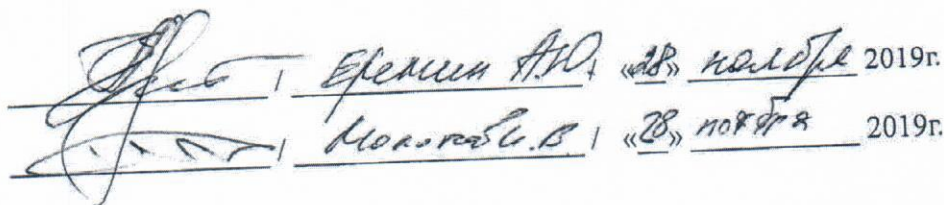 / Еремин А.Ю. / «28» ноября 2019г.
/ И.В. / «28» ноября 2019г.